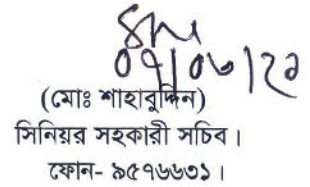 (মোঃ শাহাবুদ্দিন)
সিনিয়র সহকারী সচিব।
ফোন- ৯৫৭৬৬৩১।